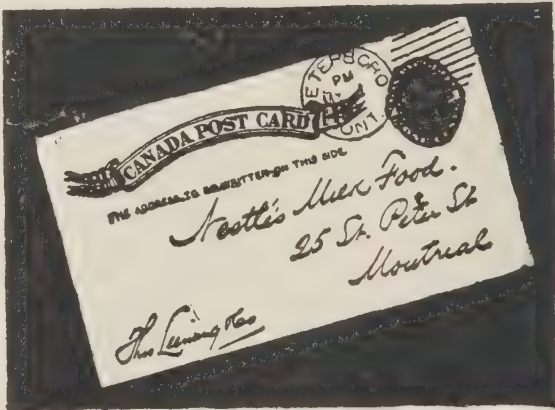 PETERBORO
PM
ONT.
CANADA POST CARD
THE ADDRESS TO BE WRITTEN ON THIS SIDE
Nestlé's Milk Food.
25 St. Peter St
Montreal
Thos Leeming & Co